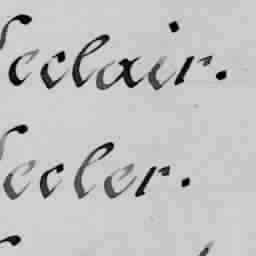 eclair.
ecler.